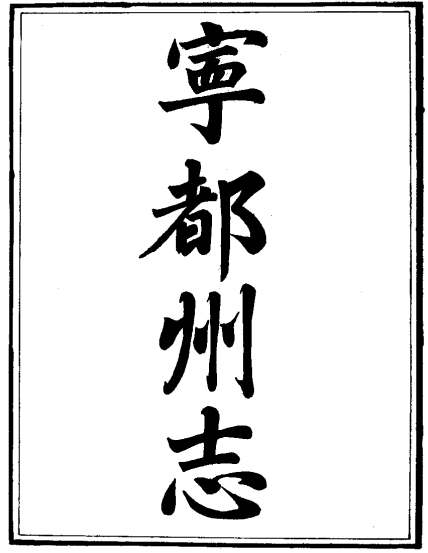 寧都州志